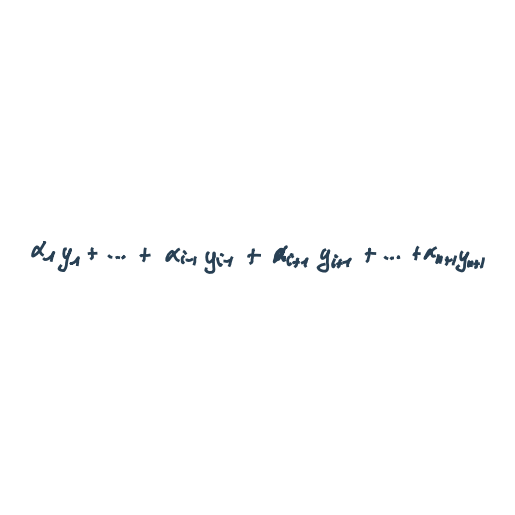 α₁y₁ + ... + αᵢ₋₁yᵢ₋₁ + αᵢ₊₁yᵢ₊₁ + ... + αₙ₊₁yₙ₊₁